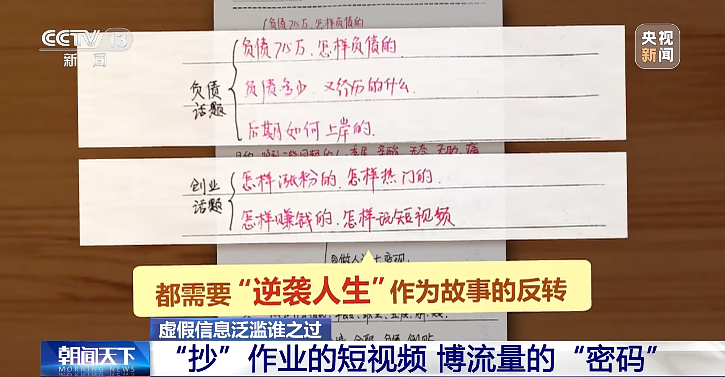 CCTV 13
新闻
央视
新闻
负债715万、怎样负债的
负债
话题
负债715万、怎样负债的
负债多少、又经历的什么
后期如何上岸的
创业
话题
怎样涨粉的、怎样热门的
怎样赚钱的、怎样玩短视频
都需要“逆袭人生”作为故事的反转
虚假信息泛滥谁之过
朝闻天下
MORNING NEWS
“抄”作业的短视频 博流量的“密码”